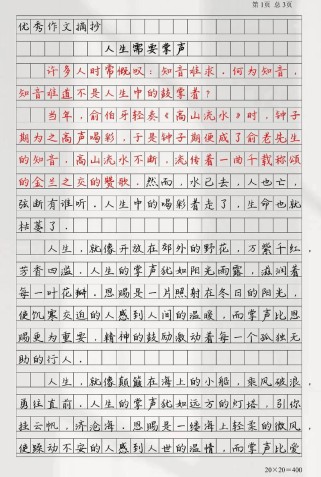 第1页 总3页
优秀作文摘抄
人生需要掌声
许多人时常慨叹：知音难求，何为知音，
知音难道不是人生中的鼓掌者？
当年，俞伯牙轻奏《高山流水》时，钟子
期为之高声喝彩，于是钟子期便成了俞老先生
的知音，高山流水不断，流传着一曲千载称颂
的金兰之交的赞歌，然而，水已去，人也亡，
弦断有谁听，人生中的喝彩者走了，生命也就
枯萎了．
人生，就像开放在郊外的野花，万紫千红，
芳香四溢，人生的掌声犹如阳光雨露，滋润着
每一叶花瓣．恩赐是一片照射在冬日的阳光，
使饥寒交迫的人感到人间的温暖，而掌声比恩
赐更为重要，精神的鼓励激动着每一个孤独无
助的行人．
人生，就像颠簸在海上的小船，乘风破浪，
勇往直前，人生的掌声犹如远方的灯塔，引你
挂云帆，济沧海，恩赐是一缕海上轻柔的微风，
使躁动不安的人感到人世的温情，而掌声比爱
20×20=400